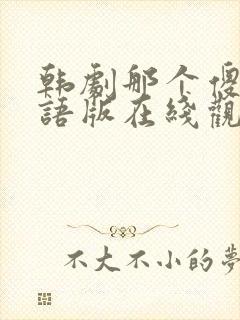 韩劇那个傻
語版在綫觀
不大不小的夢